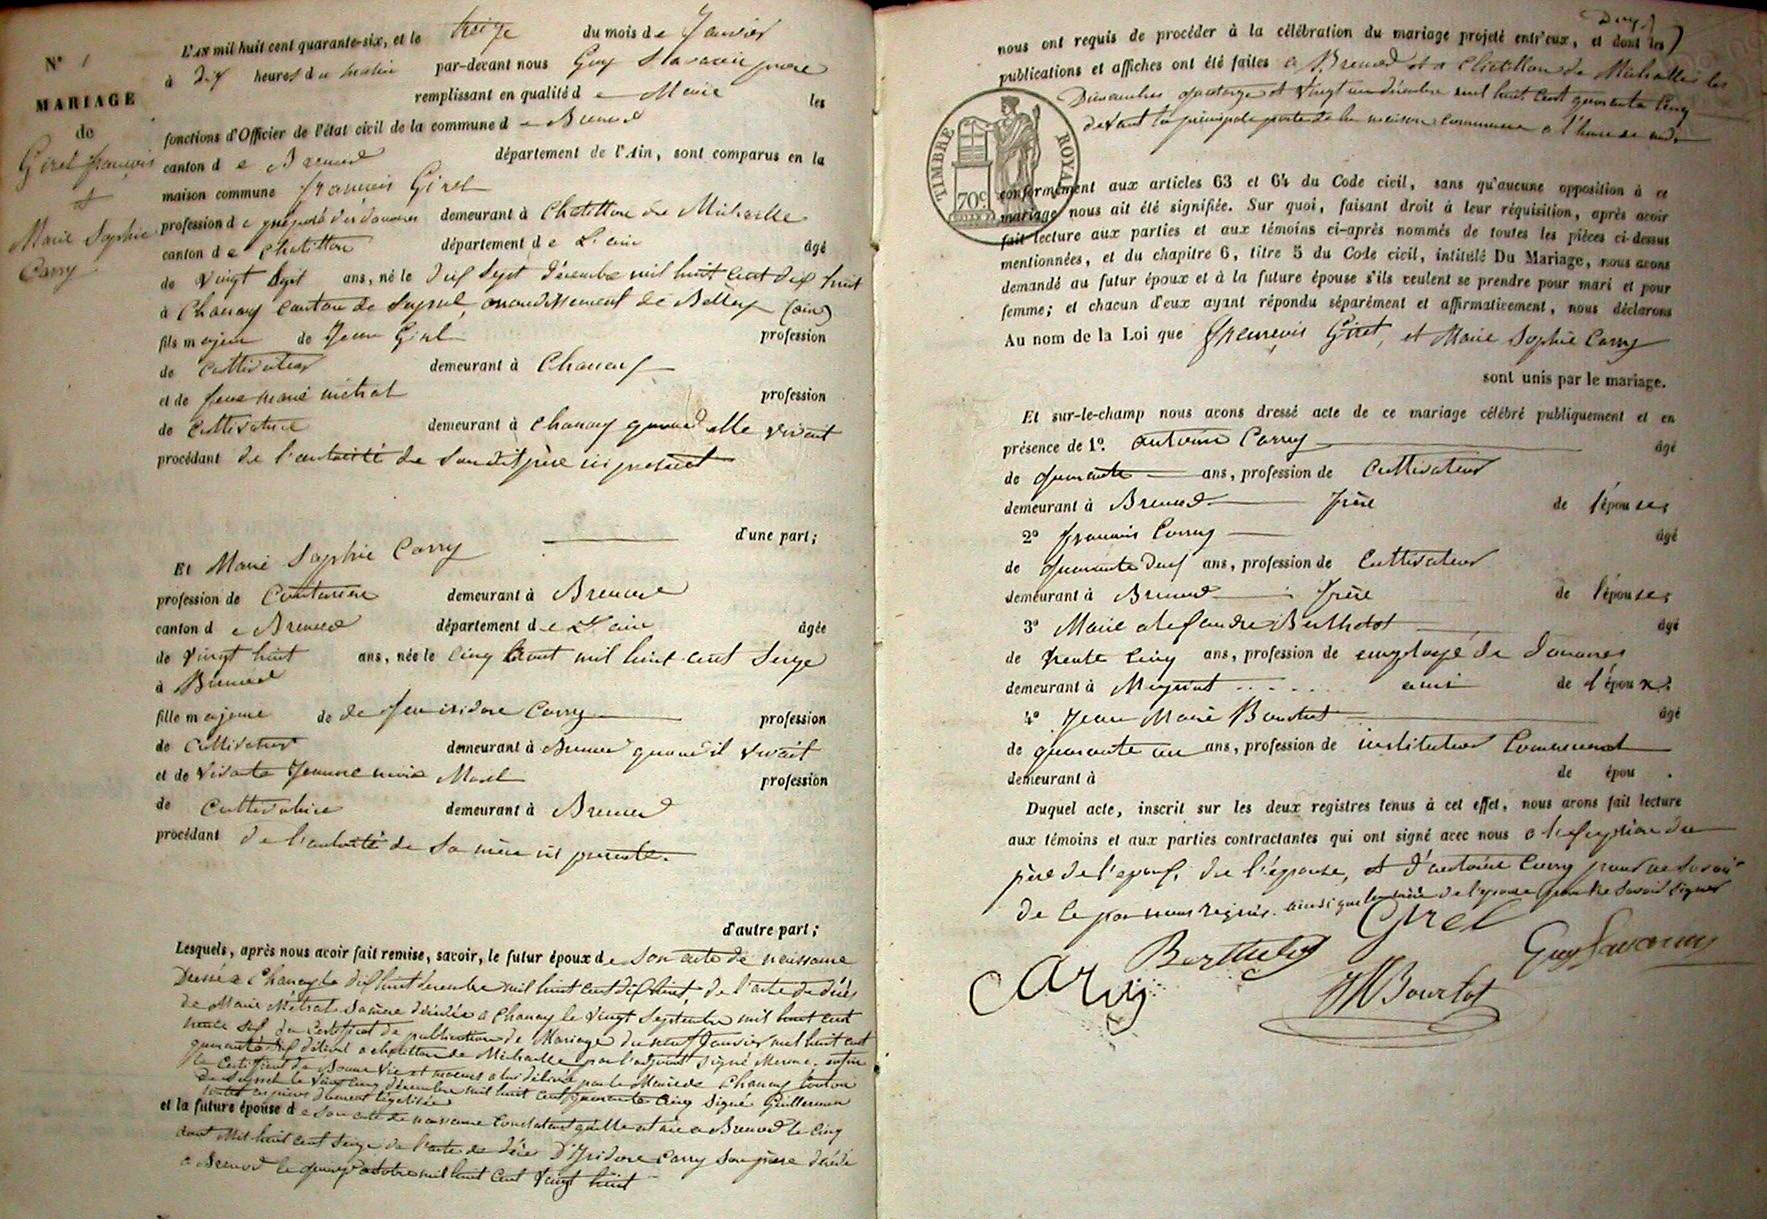 N° 1
MARIAGE
de
Girel françois
et
Marie Sophie
Carry
L'AN mil huit cent quarante-six, et le treize du mois de Janvier
à dix heures du matin par-devant nous Guy
remplissant en qualité de Maire les
fonctions d'Officier de l'état civil de la commune de Brenod
canton de Brenod département de l'Ain, sont comparus en la
maison commune françois Girel
profession de préposé des douanes demeurant à Chatillon de Michaille
canton de Chatillon département de L'ain âgé
de vingt sept ans, né le dix sept décembre mil huit cent dix huit
à Chanay canton de Seyssel, arrondissement de Belley (ain)
fils majeur de Jean Girel profession
de cultivateur demeurant à Chanay
et de feue marie métral profession
de cultivatrice demeurant à Chanay quand elle vivait
procédant de l'autorité de son dit père ici présent
d'une part;
Et Marie Sophie Carry
profession de Couturière demeurant à Brenod
canton de Brenod département de L'ain âgée
de vingt huit ans, née le cinq aout mil huit cent seize
à Brenod
fille majeure de de feu isidore Carry profession
de cultivateur demeurant à Brenod quand il vivait
et de vivante Jeanne marie Morel profession
de cultivatrice demeurant à Brenod
procédant de l'autorité de sa mère ici présente.
d'autre part;
Lesquels, après nous avoir fait remise, savoir, le futur époux de son acte de naissance
Dressé a Chanay le dix huit décembre mil huit cent dix huit de l'acte de décès
de Marie Metral sa mère décédée a Chanay le vingt septembre mil huit cent
trente six du certificat de publication de Mariage du neuf Janvier mil huit cent
quarante six délivré a chatillon de Michaille par l'adjoint signé enfin
le Certificat de Bonne vie et moeurs a lui délivré par le Maire de Chanay canton
de Seyssel le vingt cinq décembre mil huit cent quarante cinq signé Guillermin
toutes ces pièces dument légalisées
et la future épouse de son acte de naissance constatant qu'elle est née a Brenod le cinq
aout Mil huit cent seize de l'acte de décès D'Isidore Carry son père décédé
a Brenod le quinze octobre mil huit cent vingt huit
nous ont requis de procéder à la célébration du mariage projeté entr'eux, et dont les
publications et affiches ont été faites a Brenod et a Chatillon de Michaille les
Dimanches quatorze et vingt un décembre mil huit cent quarante cinq
devant la principale porte de la maison commune a l'heure de midi
TIMBRE ROYAL
70c
conformément aux articles 63 et 64 du Code civil, sans qu'aucune opposition à ce
mariage nous ait été signifiée. Sur quoi, faisant droit à leur réquisition, après avoir
fait lecture aux parties et aux témoins ci-après nommés de toutes les pièces ci-dessus
mentionnées, et du chapitre 6, titre 5 du Code civil, intitulé Du Mariage, nous avons
demandé au futur époux et à la future épouse s'ils veulent se prendre pour mari et pour
femme; et chacun d'eux ayant répondu séparément et affirmativement, nous déclarons
Au nom de la Loi que françois Girel, et Marie Sophie Carry
sont unis par le mariage.
Et sur-le-champ nous avons dressé acte de ce mariage célébré publiquement et en
présence de 1°. antoine Carry âgé
de quarante ans, profession de Cultivateur
demeurant à Brenod frère de l'épouse;
2° françois Carry âgé
de quarante deux ans, profession de Cultivateur
demeurant à Brenod frère de l'épouse;
3° Marie alexandre Berthelot âgé
de trente cinq ans, profession de employé de douanes
demeurant à Meyriat ami de l'époux;
4° Jean Marie Bourlot âgé
de quarante un ans, profession de instituteur Communal
demeurant à de épou .
Duquel acte, inscrit sur les deux registres tenus à cet effet, nous avons fait lecture
aux témoins et aux parties contractantes qui ont signé avec nous a l'exception du
père de l'époux, de l'épouse, et d'antoine Carry pour ne savoir
de ce par nous requis. ainsi que la mère de l'épouse pour ne savoir signer
Girel
Berthelot
Cary
JMBourlot